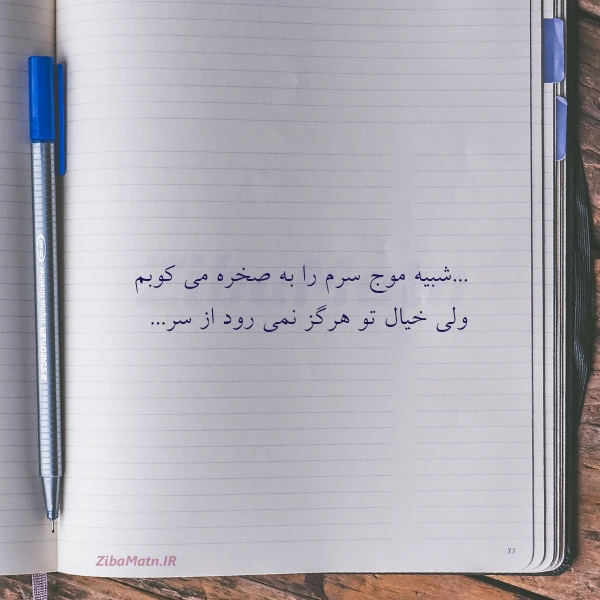 ...شبیه موج سرم را به صخره می کوبم
ولی خیال تو هرگز نمی رود از سر...
ZibaMatn.IR
77